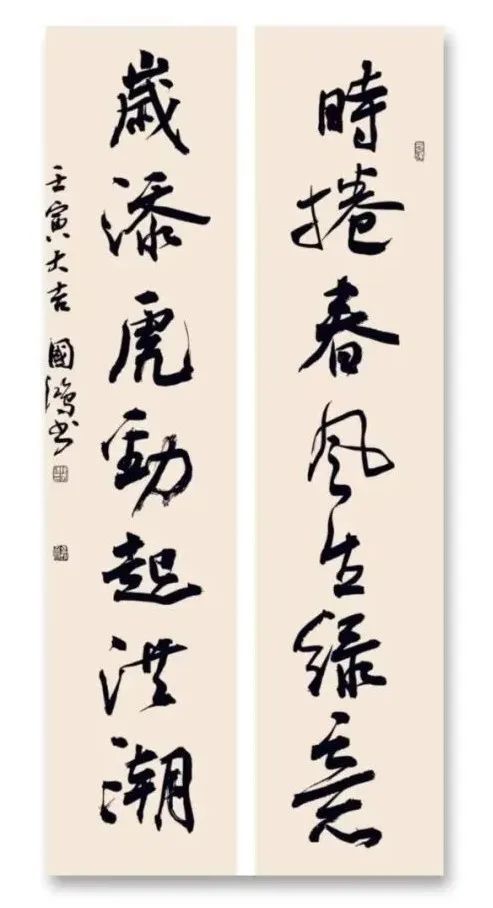 時捲春風生綠意
歲添虎勁起洪潮
壬寅大吉 國鴻書